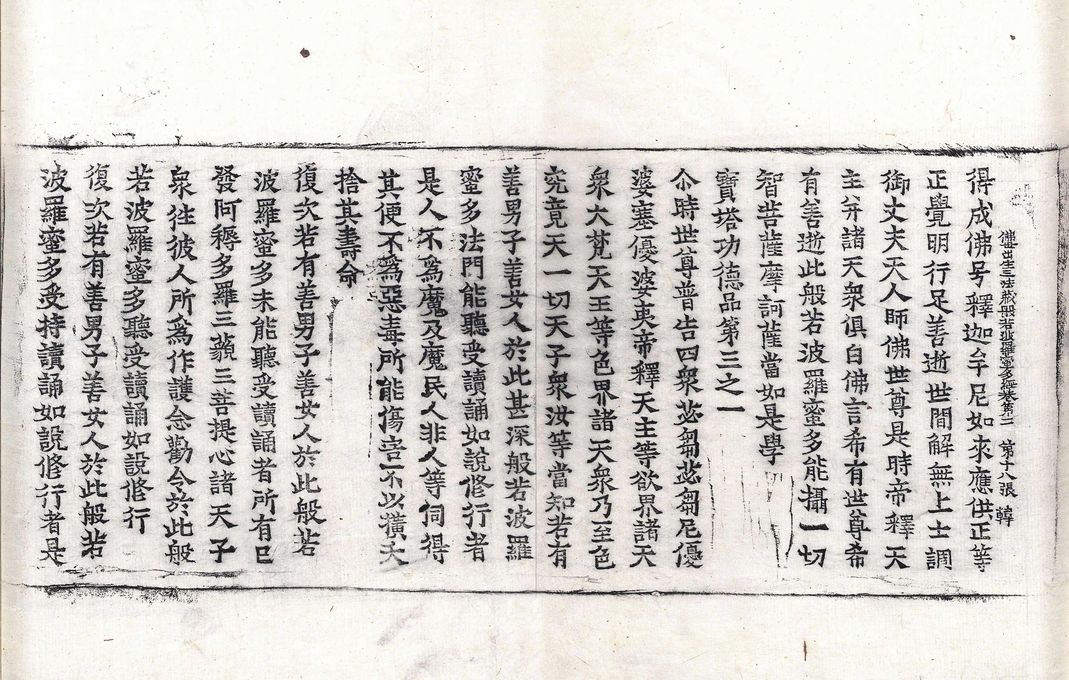 佛出生三法藏般若波羅蜜多經卷第二 第十八張 韓
得成佛号釋迦牟尼如來應供正等
正覺明行足善逝世間解無上士調
御丈夫天人師佛世尊是時帝釋天
主并諸天衆俱白佛言希有世尊希
有善逝此般若波羅蜜多能攝一切
智菩薩摩訶薩當如是學
寶塔功德品第三之一
尒時世尊普告四衆苾芻苾芻尼優
婆塞優婆夷帝釋天主等欲界諸天
衆大梵天王等色界諸天衆乃至色
究竟天一切天子衆汝等當知若有
善男子善女人於此甚深般若波羅
蜜多法門能聽受讀誦如說修行者
是人不爲魔及魔民人非人等伺得
其便不爲惡毒所能傷害不以橫夭
捨其壽命
復次若有善男子善女人於此般若
波羅蜜多未能聽受讀誦者所有已
發阿耨多羅三藐三菩提心諸天子
衆往彼人所爲作護念勸令於此般
若波羅蜜多聽受讀誦如說修行
復次若有善男子善女人於此般若
波羅蜜多受持讀誦如說修行者是